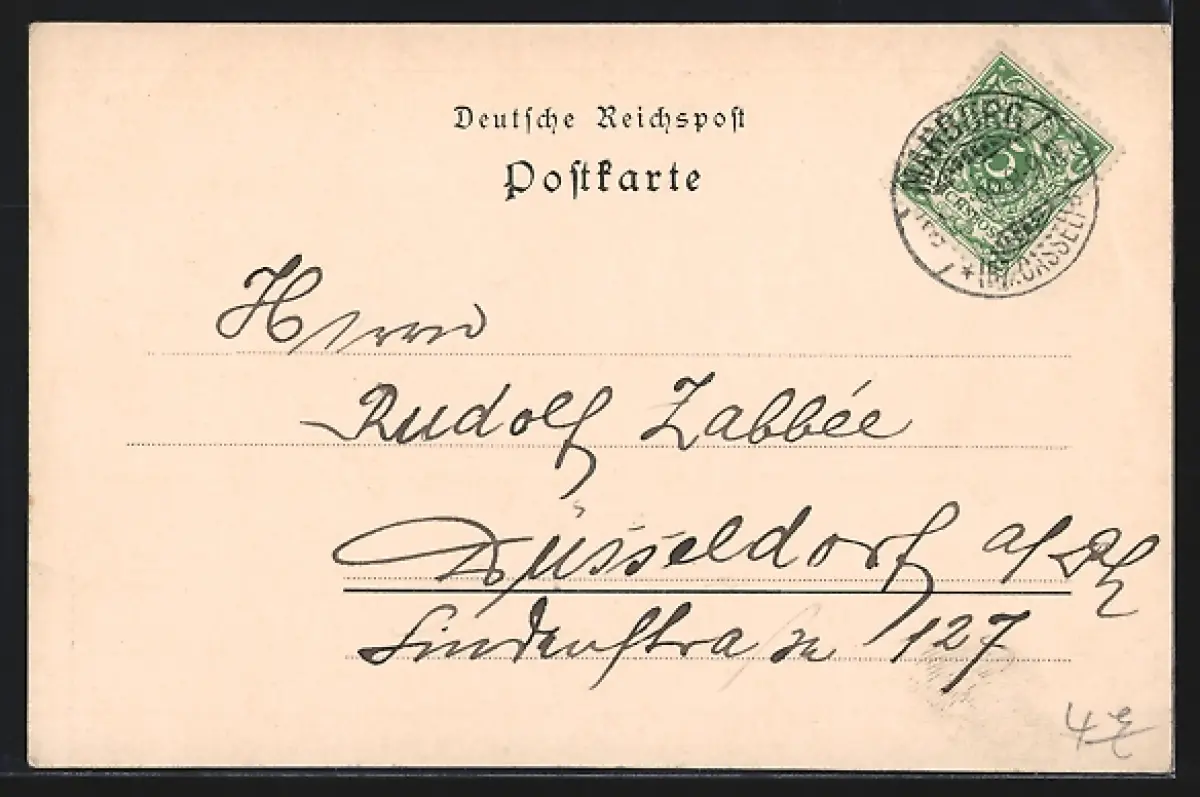 Deutsche Reichspost
Postkarte
MARBURG
* (BZ. CASSEL)
Herrn
Rudolf Zabbée
Düsseldorf a/Rh
Lindenstraße 127
4